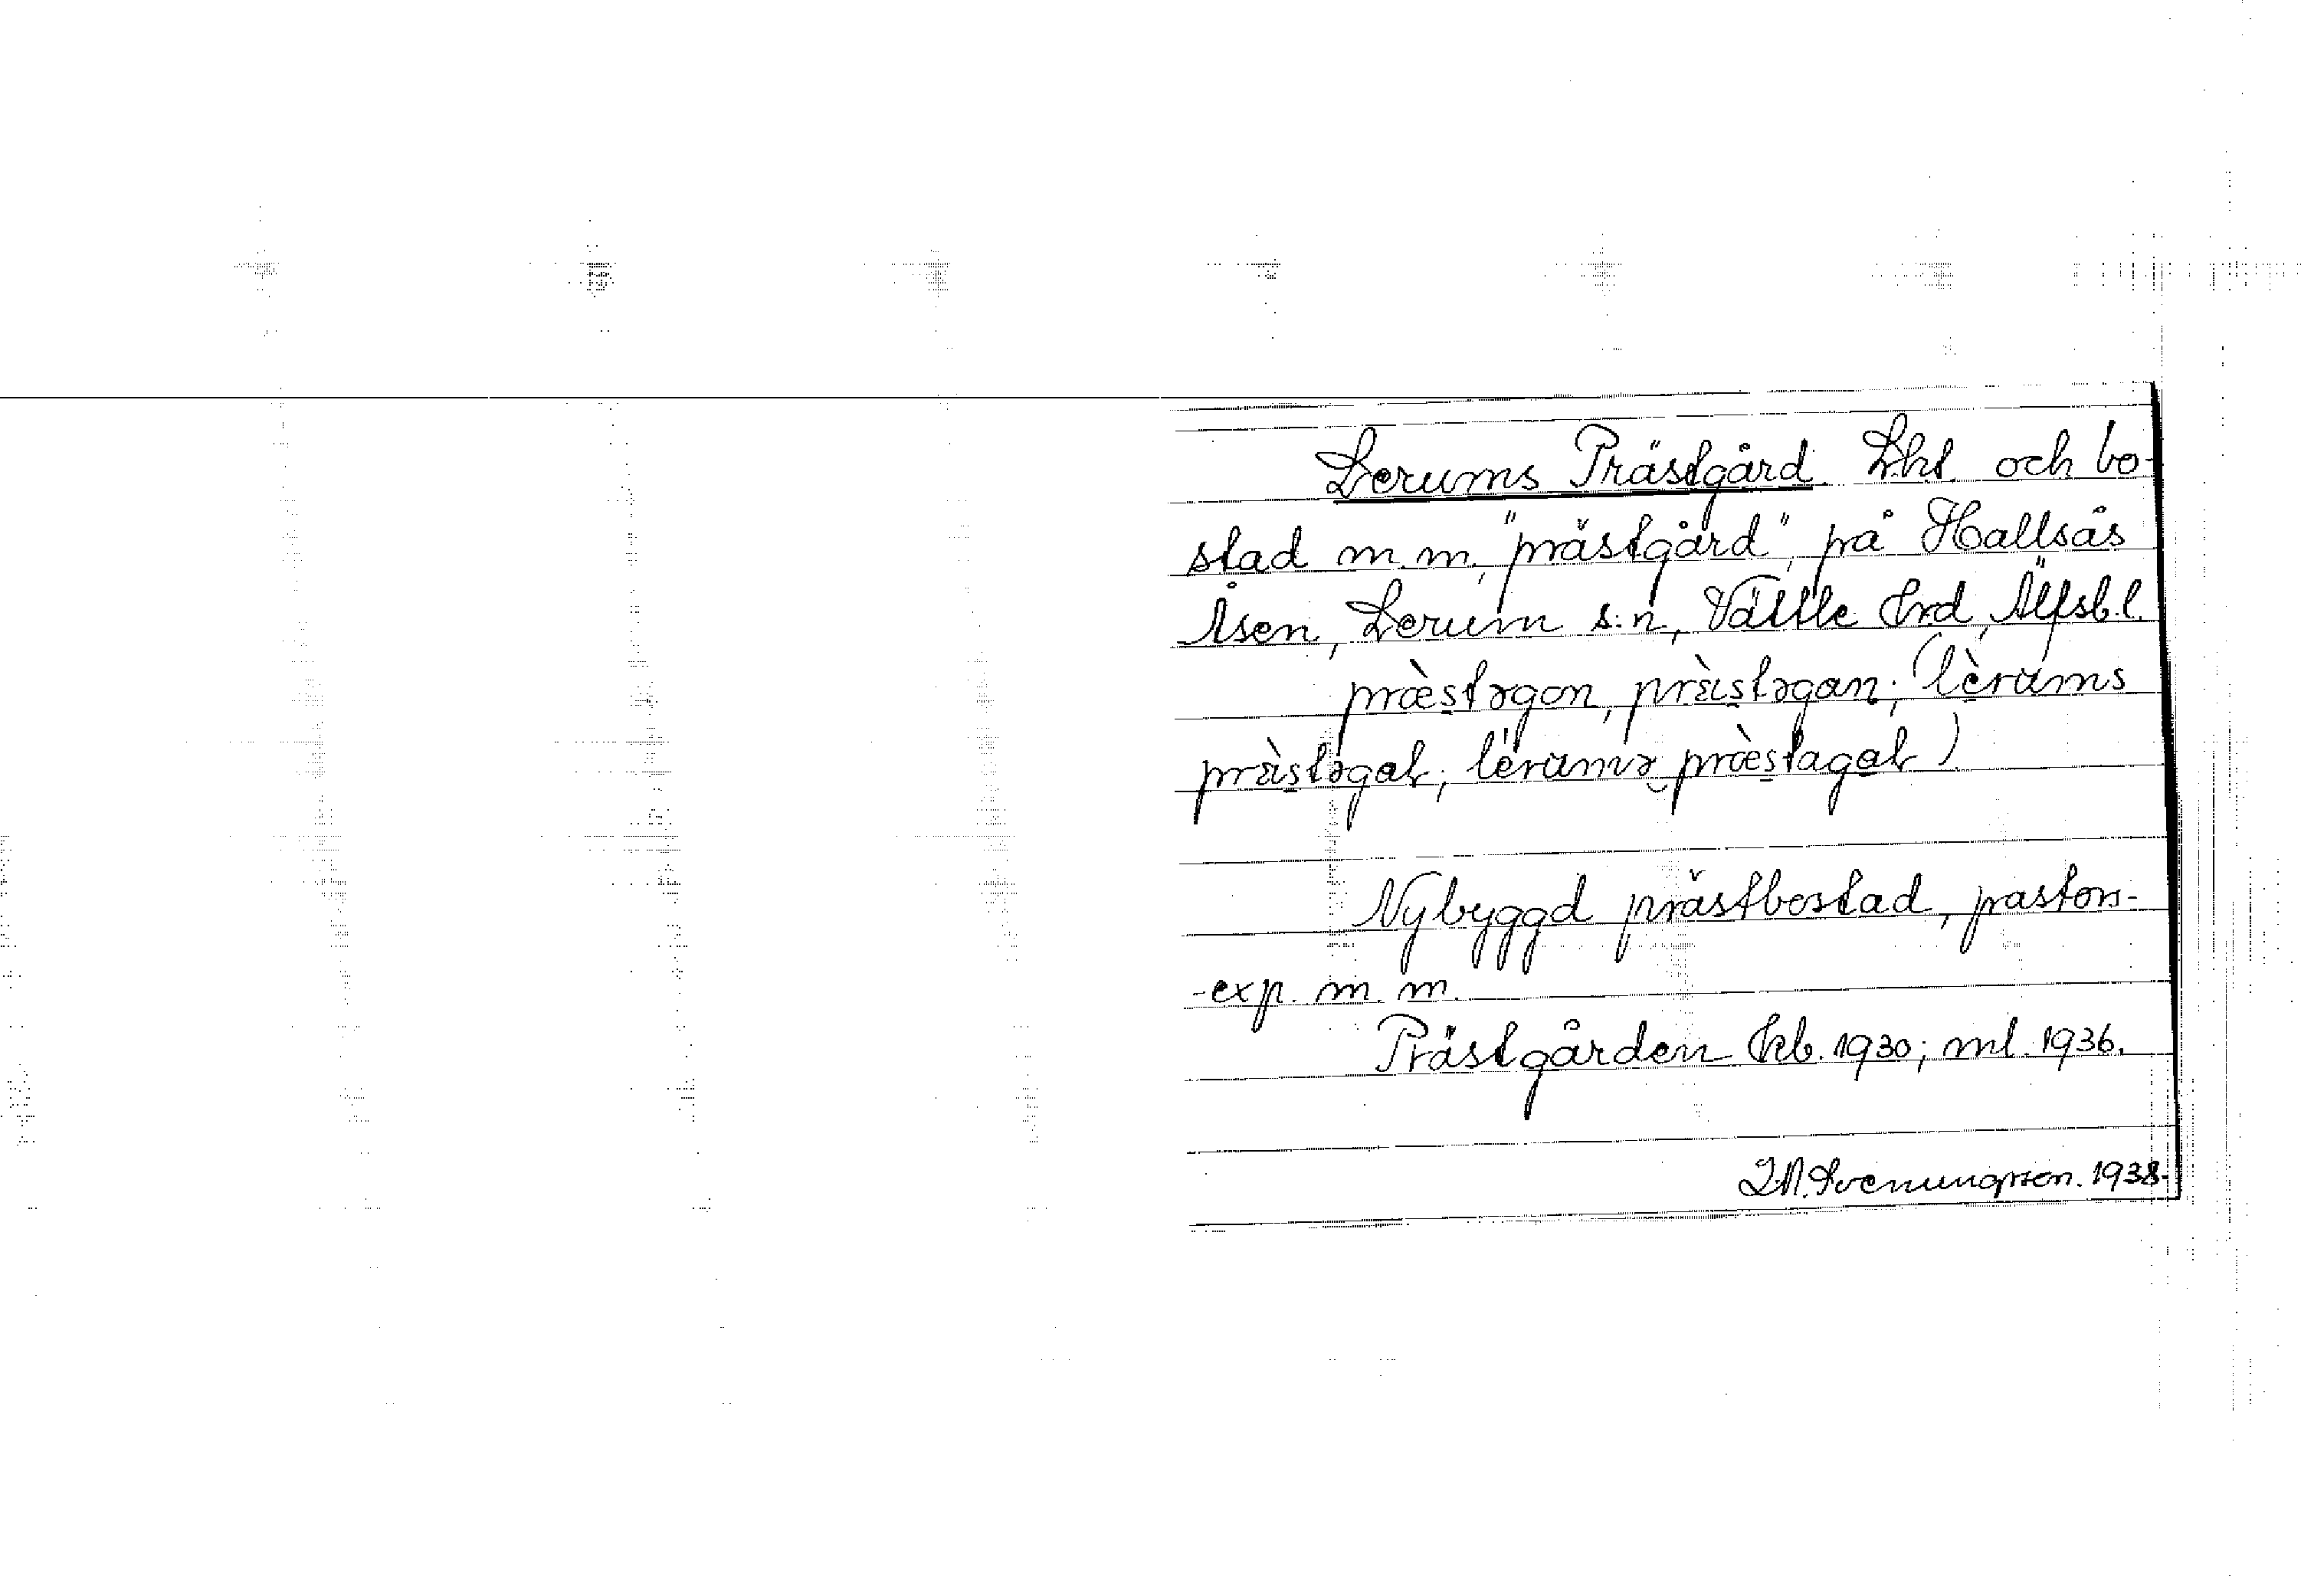 Lerums Prästgård. Lht. och bo-
stad m.m., "prästgård", på Hallsås
Åsen, Lerum s:n, Vättle hrd, Älfsb.l.
præ̀stəgɒn, præ̀stəgan; (lèrums
præ̀stəgaɽ; lèrumə præ̀stagaɽ)
Nybyggd prästbostad, pastors-
-exp. m. m.
Prästgården kb. 1930; ml. 1936.
Svenungsson. 1938.